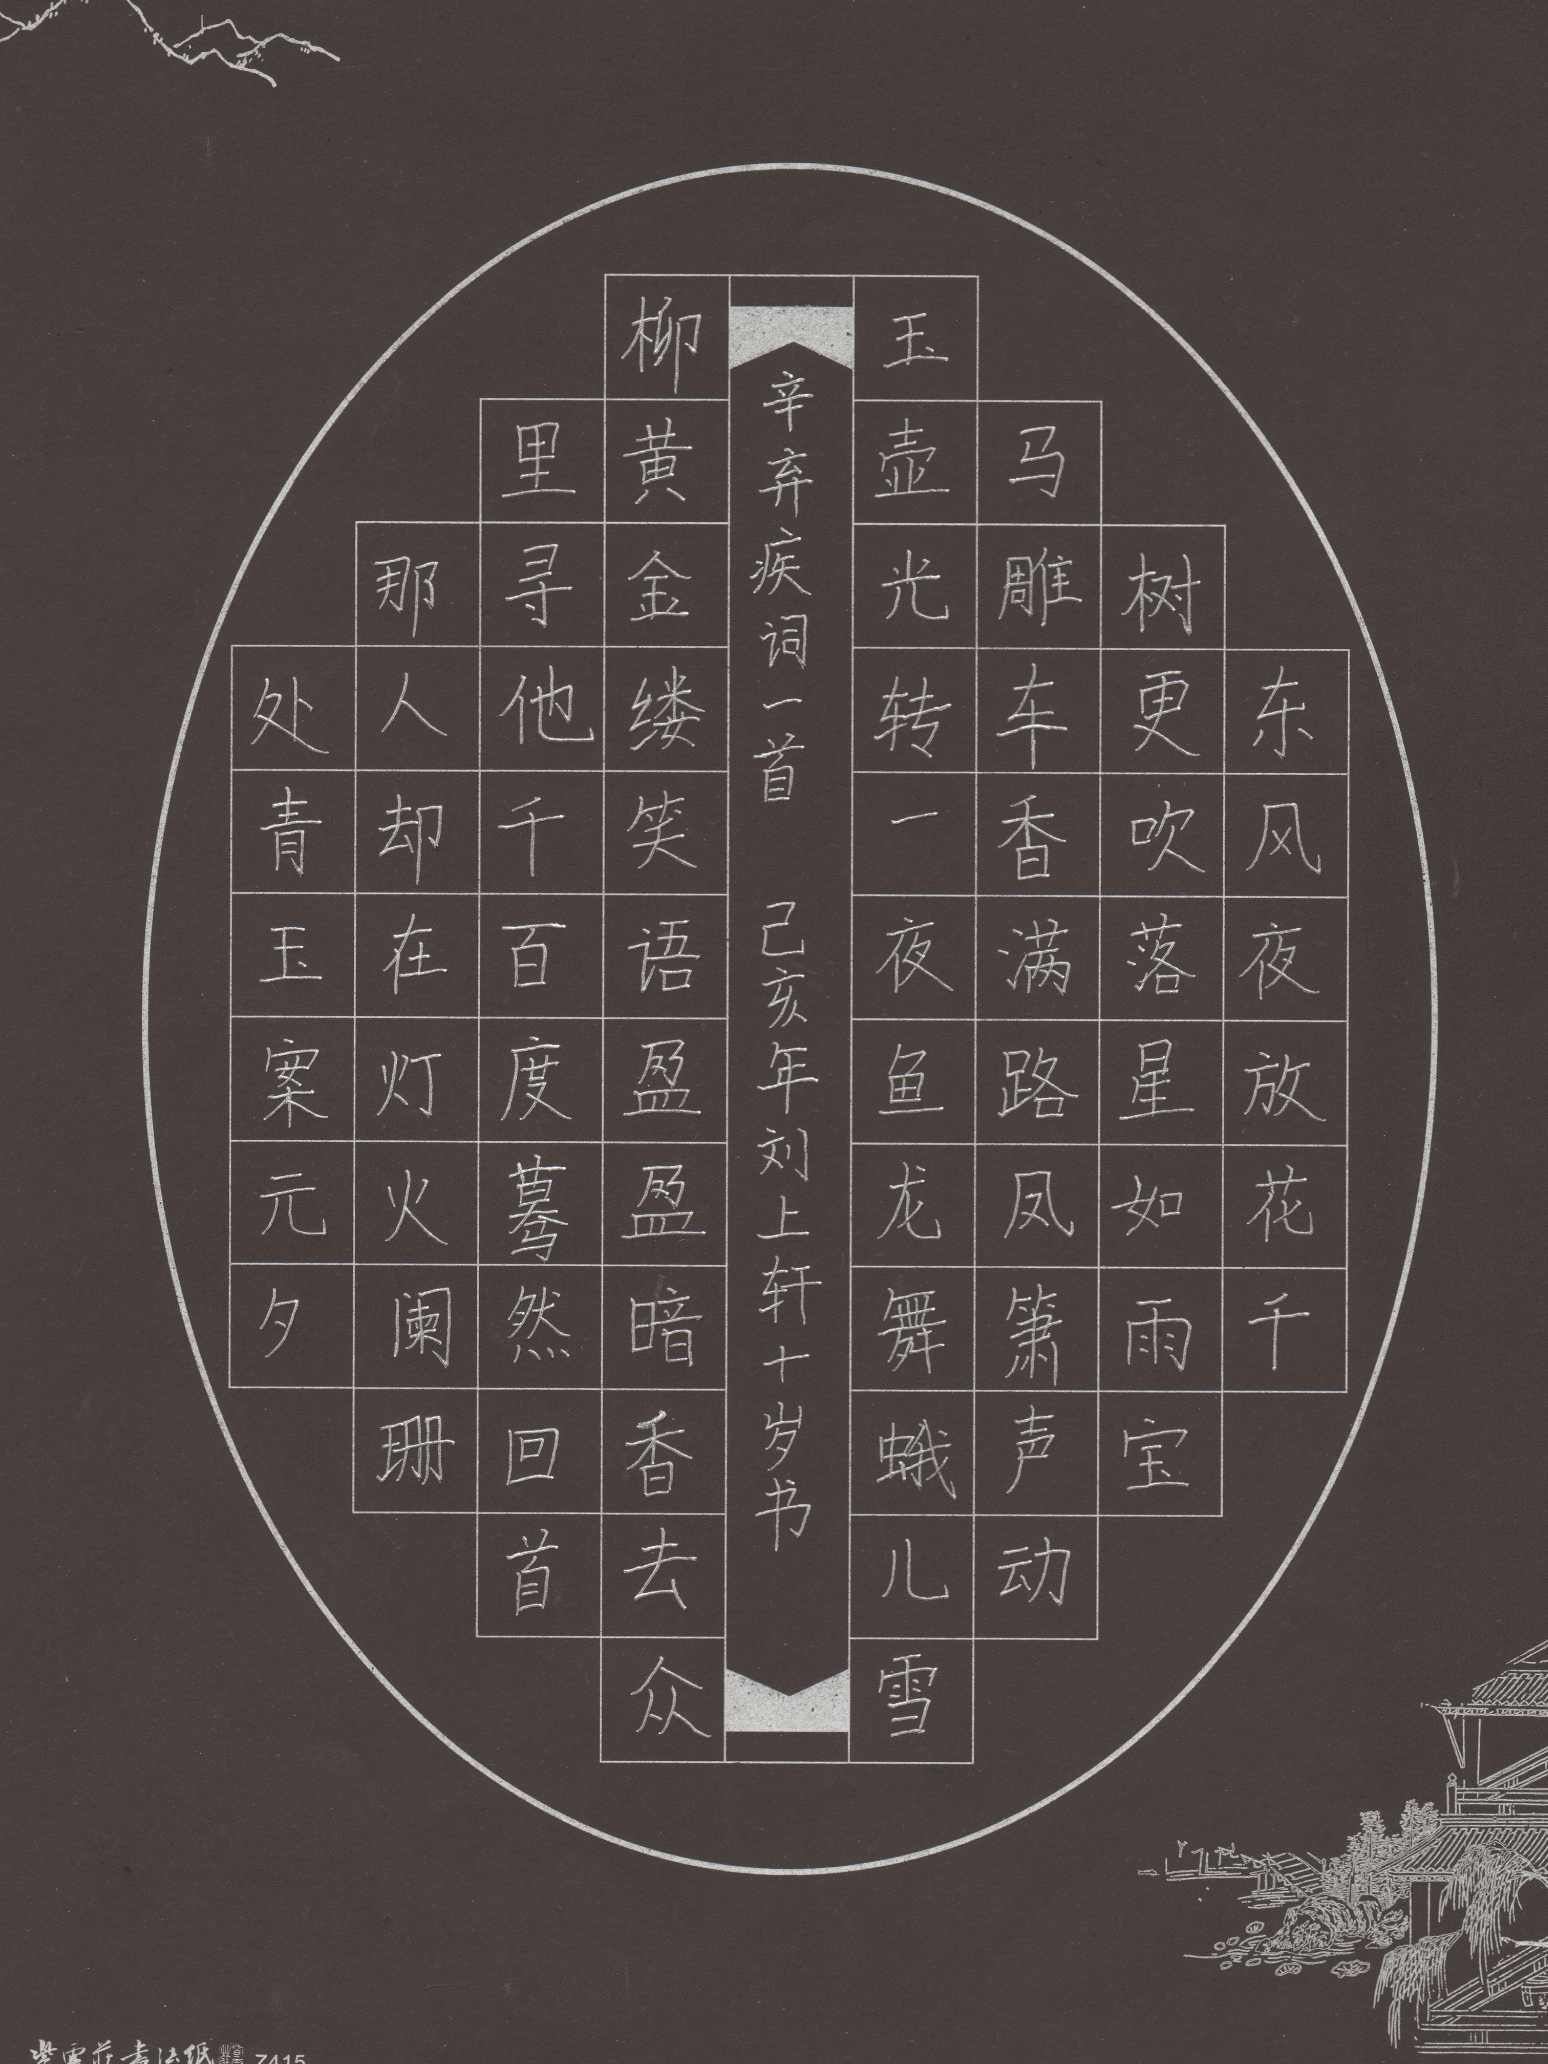 东风夜放花千
树更吹落星如雨宝
马雕车香满路凤箫声动
玉壶光转一夜鱼龙舞蛾儿雪
辛弃疾词一首 己亥年刘上轩十岁书
柳黄金缕笑语盈盈暗香去众
里寻他千百度蓦然回首
那人却在灯火阑珊
处青玉案元夕
紫云庄书法纸
7415